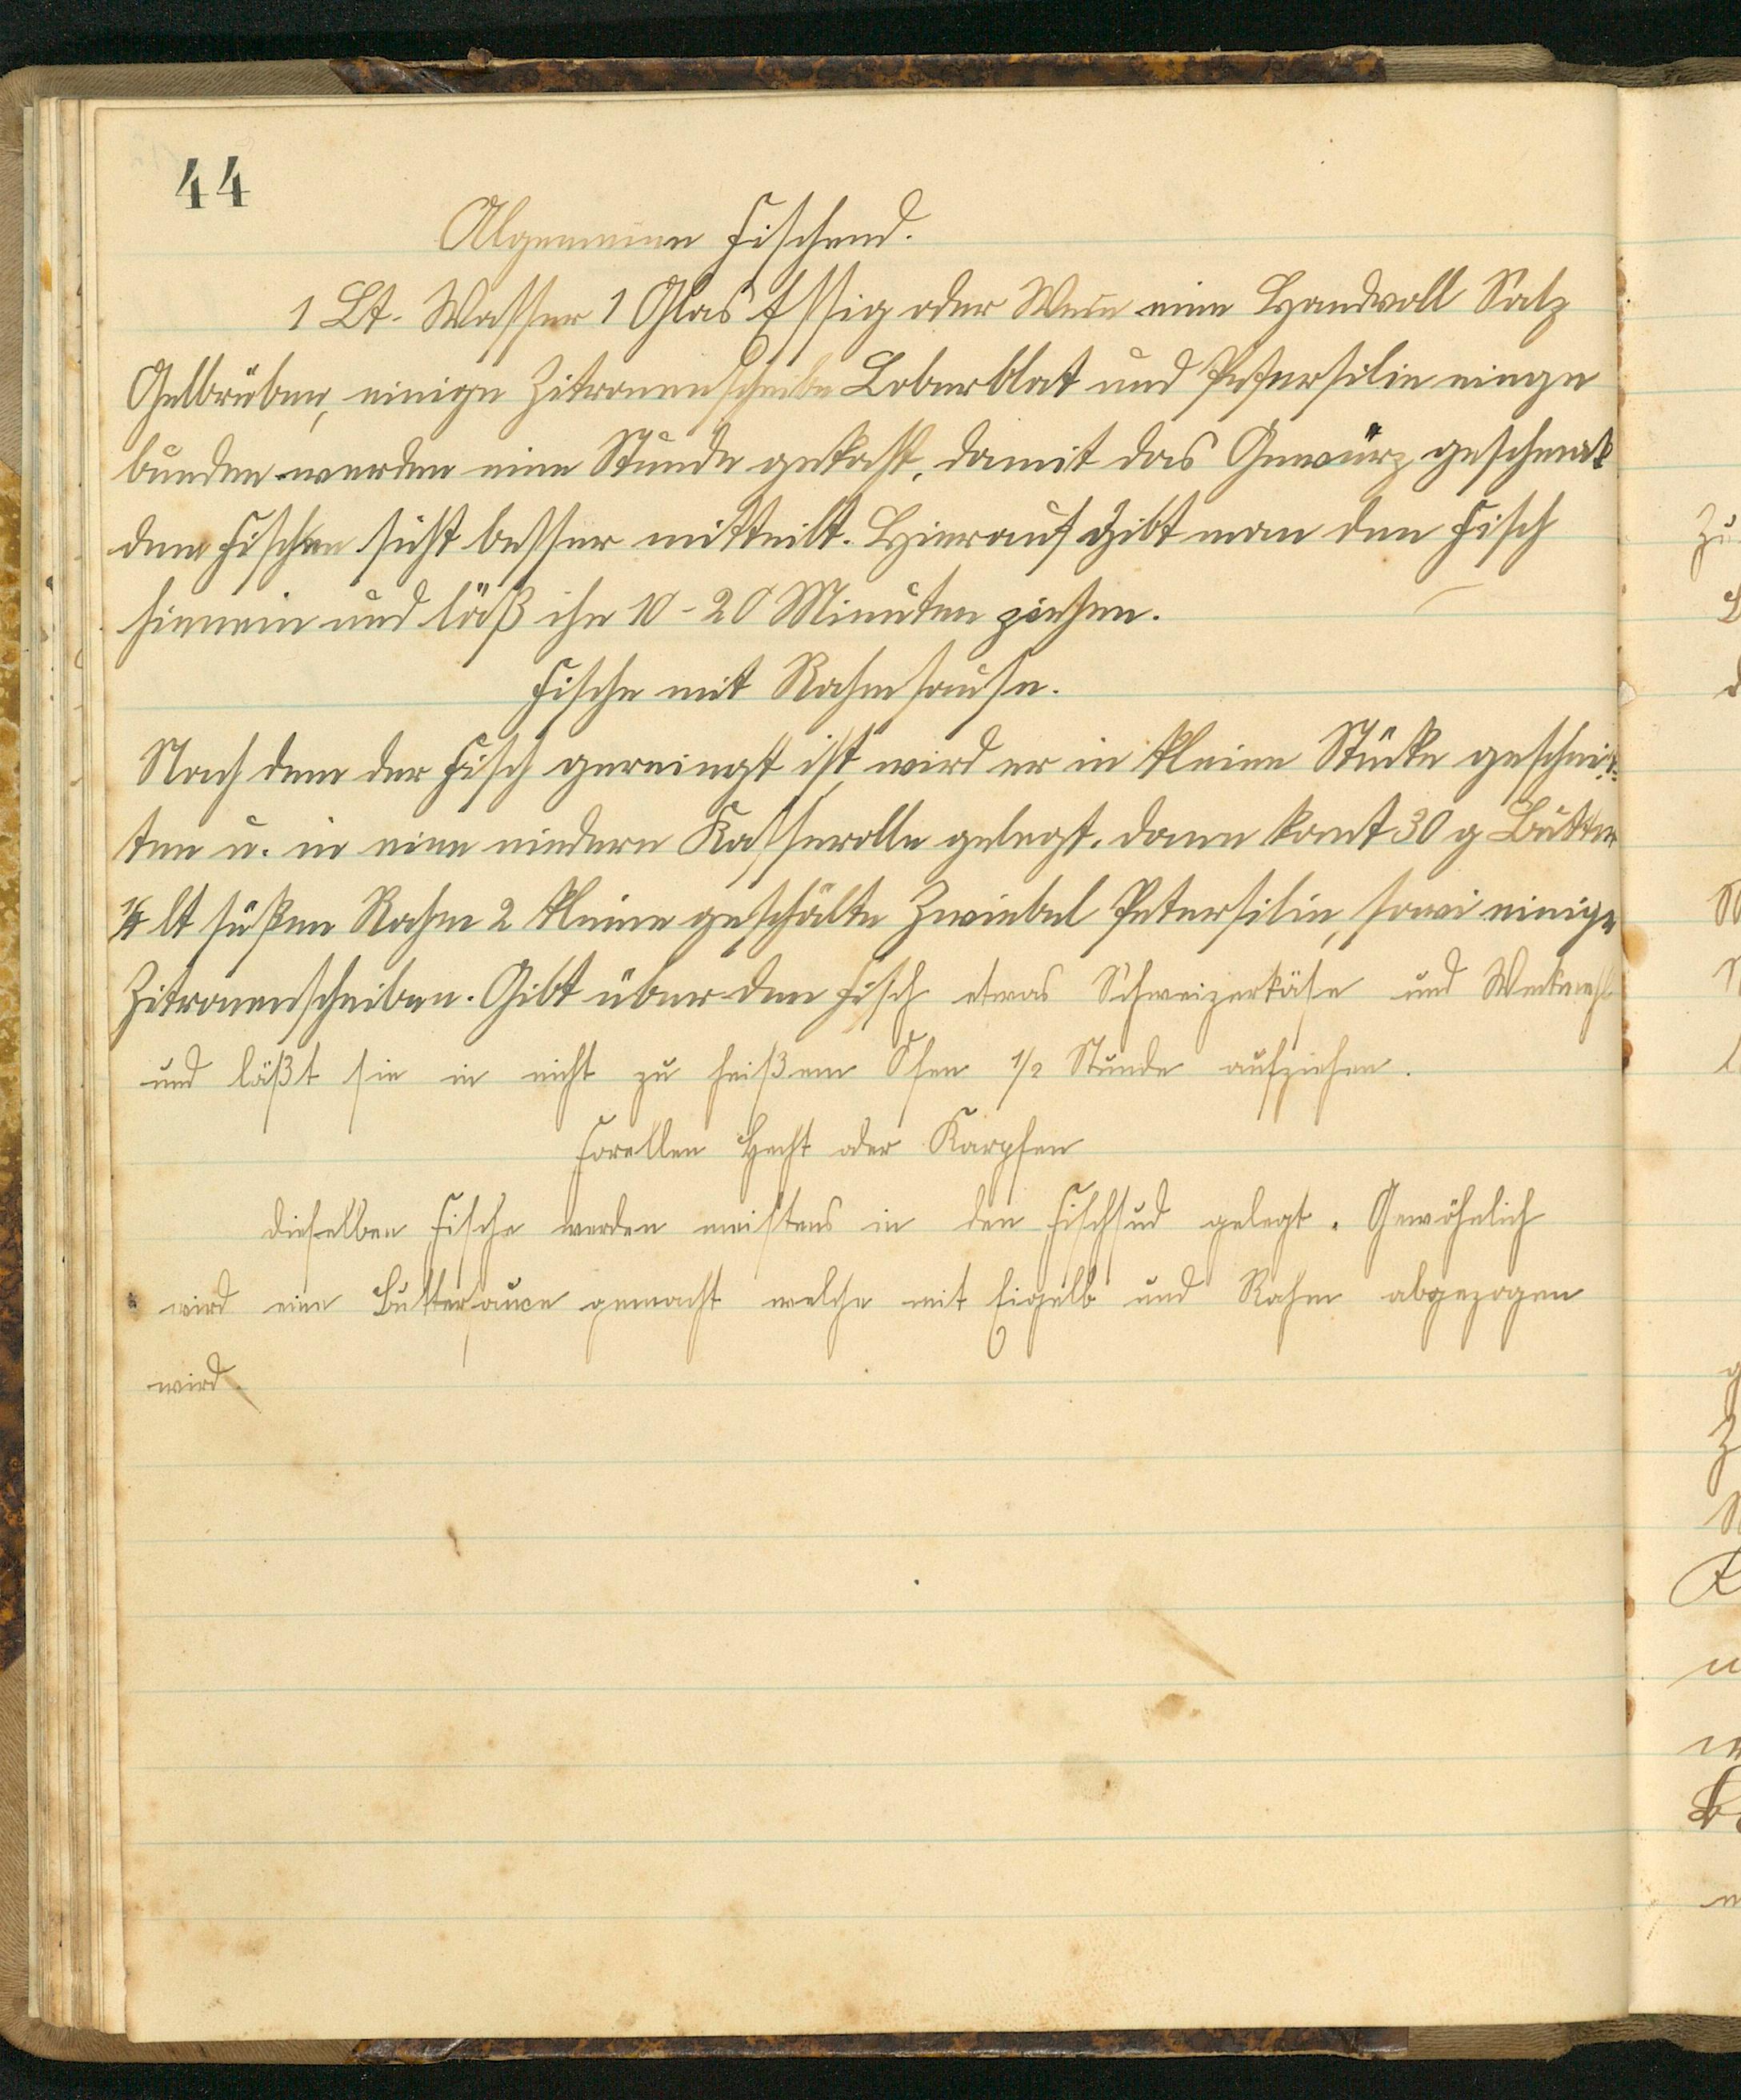 44
Algemeine Fischsud.
1 Lt. Wasser 1 Glas Essig oder Wein eine Handvoll Salz
Gelbrüben, einige Zitronenscheibe Loberblat und Petersilie einge
bunden werden eine Stunde gekocht, damit das Gewürz geschmak
dem Fischen sicht besser mitteilt. Hierauf gibt man den Fisch
hienein und läß ihn 10-20 Minuten ziehen.
Fische mit Rahmsause.
Nach dem der Fisch gereinigt ist, wird er in kleine Stücke geschnit-
ten u. in eine niedere Kasserolle gelegt. dann komt 30 g Butter
1/4 lt süßen Rahm 2 kleine geschälte Zwiebel Petersilie, sowi einige
Zitronenscheiben. Gibt über den Fisch etwas Schweizerkäse und Weckmehl
und läßt sie in nicht zu heißem Ofen 1/2 Stunde aufziehen.
Forellen Hecht oder Karpfen
dieselben Fische werden meistens in den Fischsud gelegt. Gewöhnlich
wird eine Buttersauce gemacht welche mit Eigelb und Rahm abgezogen
wird.